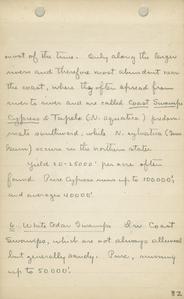 most of the time. Only along the larger
rivers and therefore most abundant near
the coast, where they often spread from
river to river and are called Coast Swamps
Cypress & Tupelo (N. aquatica) predom-
inate southward, while N. sylvatica (
Gum) occurs in the northern states.
Yield 20-25000' per acre often
found. Pure Cypress runs up to 100000',
and averages 40000'.
6. White Cedar Swamps In Coast
Swamps, which are not always alluvial
but generally sandy. Pure, running
up to 50000'.
82